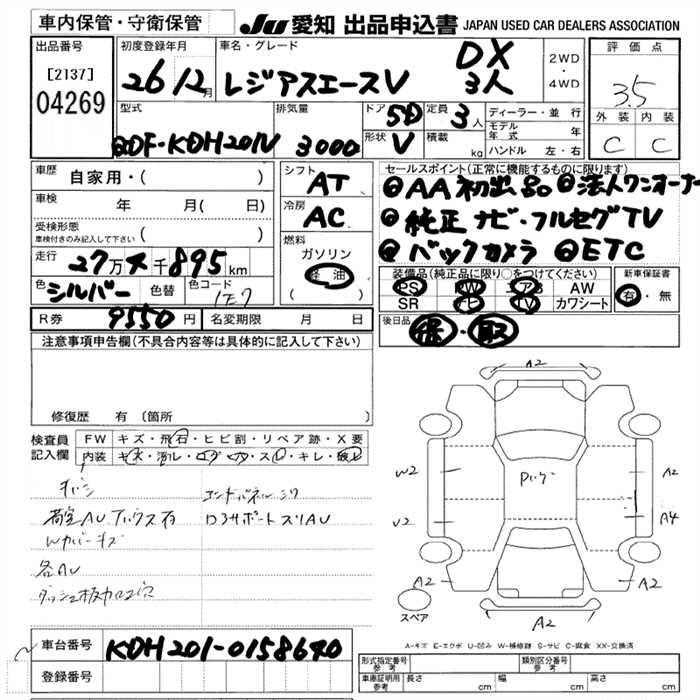 車内保管・守衛保管
JU 愛知 出品申込書 JAPAN USED CAR DEALERS ASSOCIATION
出品番号
[2137]
04269
初度登録年月
26 12月
車名・グレード
レジアスエースV
DX
3人
2WD
・
4WD
評価点
3.5
外装 内装
C C
型式
QDF-KDH201V
排気量
3000
ドア 5D
形状 V
定員 3人
積載 kg
ディーラー・並行
モデル年式 年
ハンドル 左・右
車歴
自家用・( )
車検
年 月( 日)
受検形態
車検付きのみ記入して下さい ( )
走行
27万4千895km
色 シルバー 色替 色コード 1E7
シフト
AT
冷房
AC
燃料
ガソリン
軽油
( )
セールスポイント(正常に機能するものに限ります)
◎AA初出品◎法人ワンオーナー
◎純正ナビ・フルセグTV
◎バックカメラ ◎ETC
装備品(純正品に限り○をつけてください)
PS PW エアB AW
SR ナビ TV カワシート
新車保証書
有・無
R券 9550円 名変期限 月 日
後日品 保・取
注意事項申告欄(不具合内容等は具体的に記入して下さい)
修復歴 有(箇所 )
検査員
記入欄
FW キズ・飛石・ヒビ割・リペア跡・X要
内装
各AU
エンドパネル
コアサポートスリAU
A2
W2
U2
A2
A4
A2
A2
A2
スペア
A-キズ E-エクボ U-凹み W-補修跡 S-サビ C-腐食 XX-交換済
車台番号 KDH201-0158640
登録番号
形式指定番号
参考
類別区分番号
参考
車庫証明用
参考
長さ cm 幅 cm 高さ cm